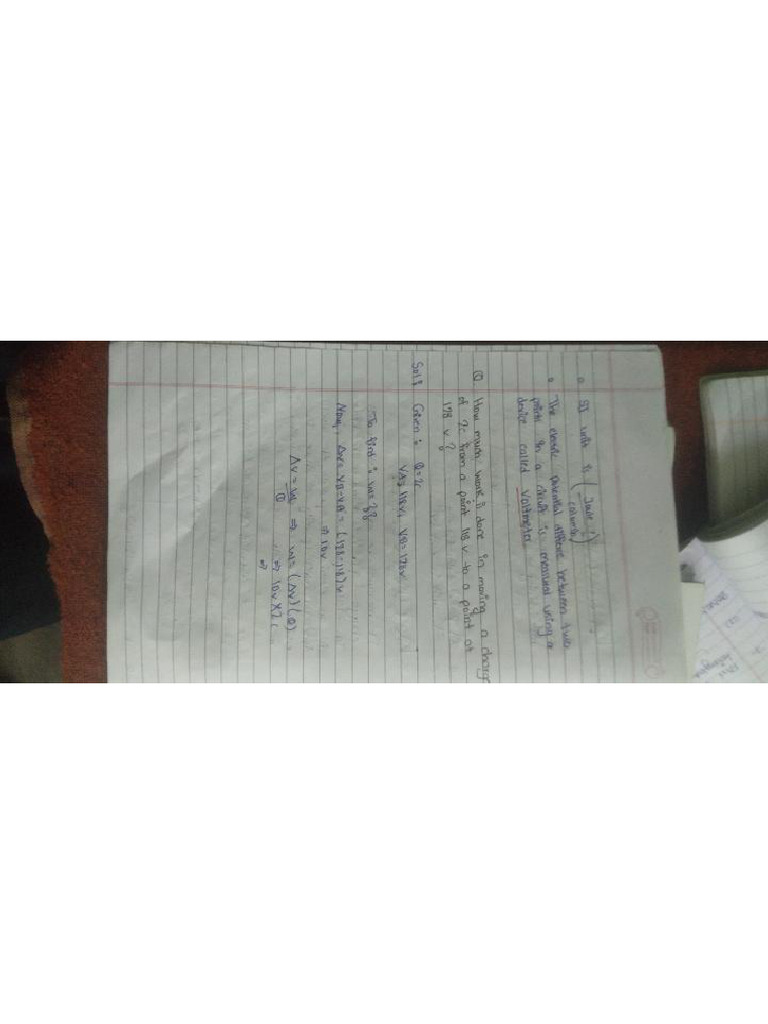 SI unit is (Joule / coulomb)
The electric potential difference between two
points in a circuit is measured using a
device called Voltmeter
Q How much work is done in moving a charge
of 2c from a point 118 v to a point at
128 v?
Sol: Given: Q = 2c
VA = 118v, VB = 128v
To find: W = ?
Now, ΔV = VB - VA = (128-118) v
⇒ 10v
ΔV = W/Q ⇒ W = (ΔV)(Q)
⇒ 10v × 2c
⇒